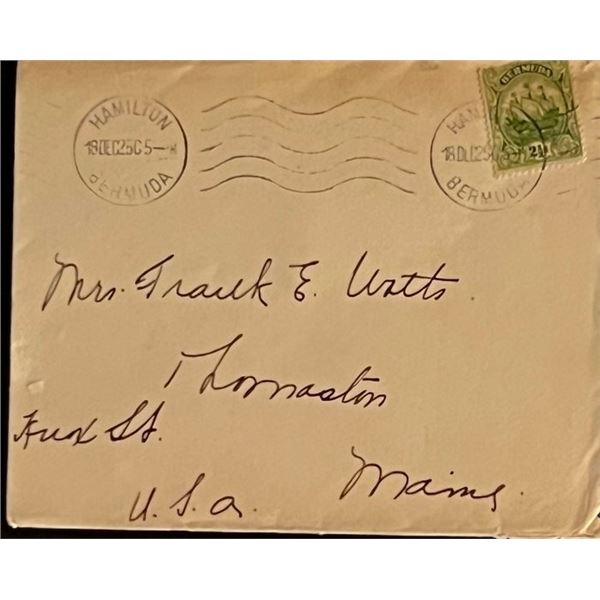 HAMILTON
18 DEC 25 6 5-
BERMUDA
HAM
18 DEC 25
BERMUDA
BERMUDA
2½
Mrs. Frank E. Watts.
Thomaston
Knox St.
Maine.
U.S.A.